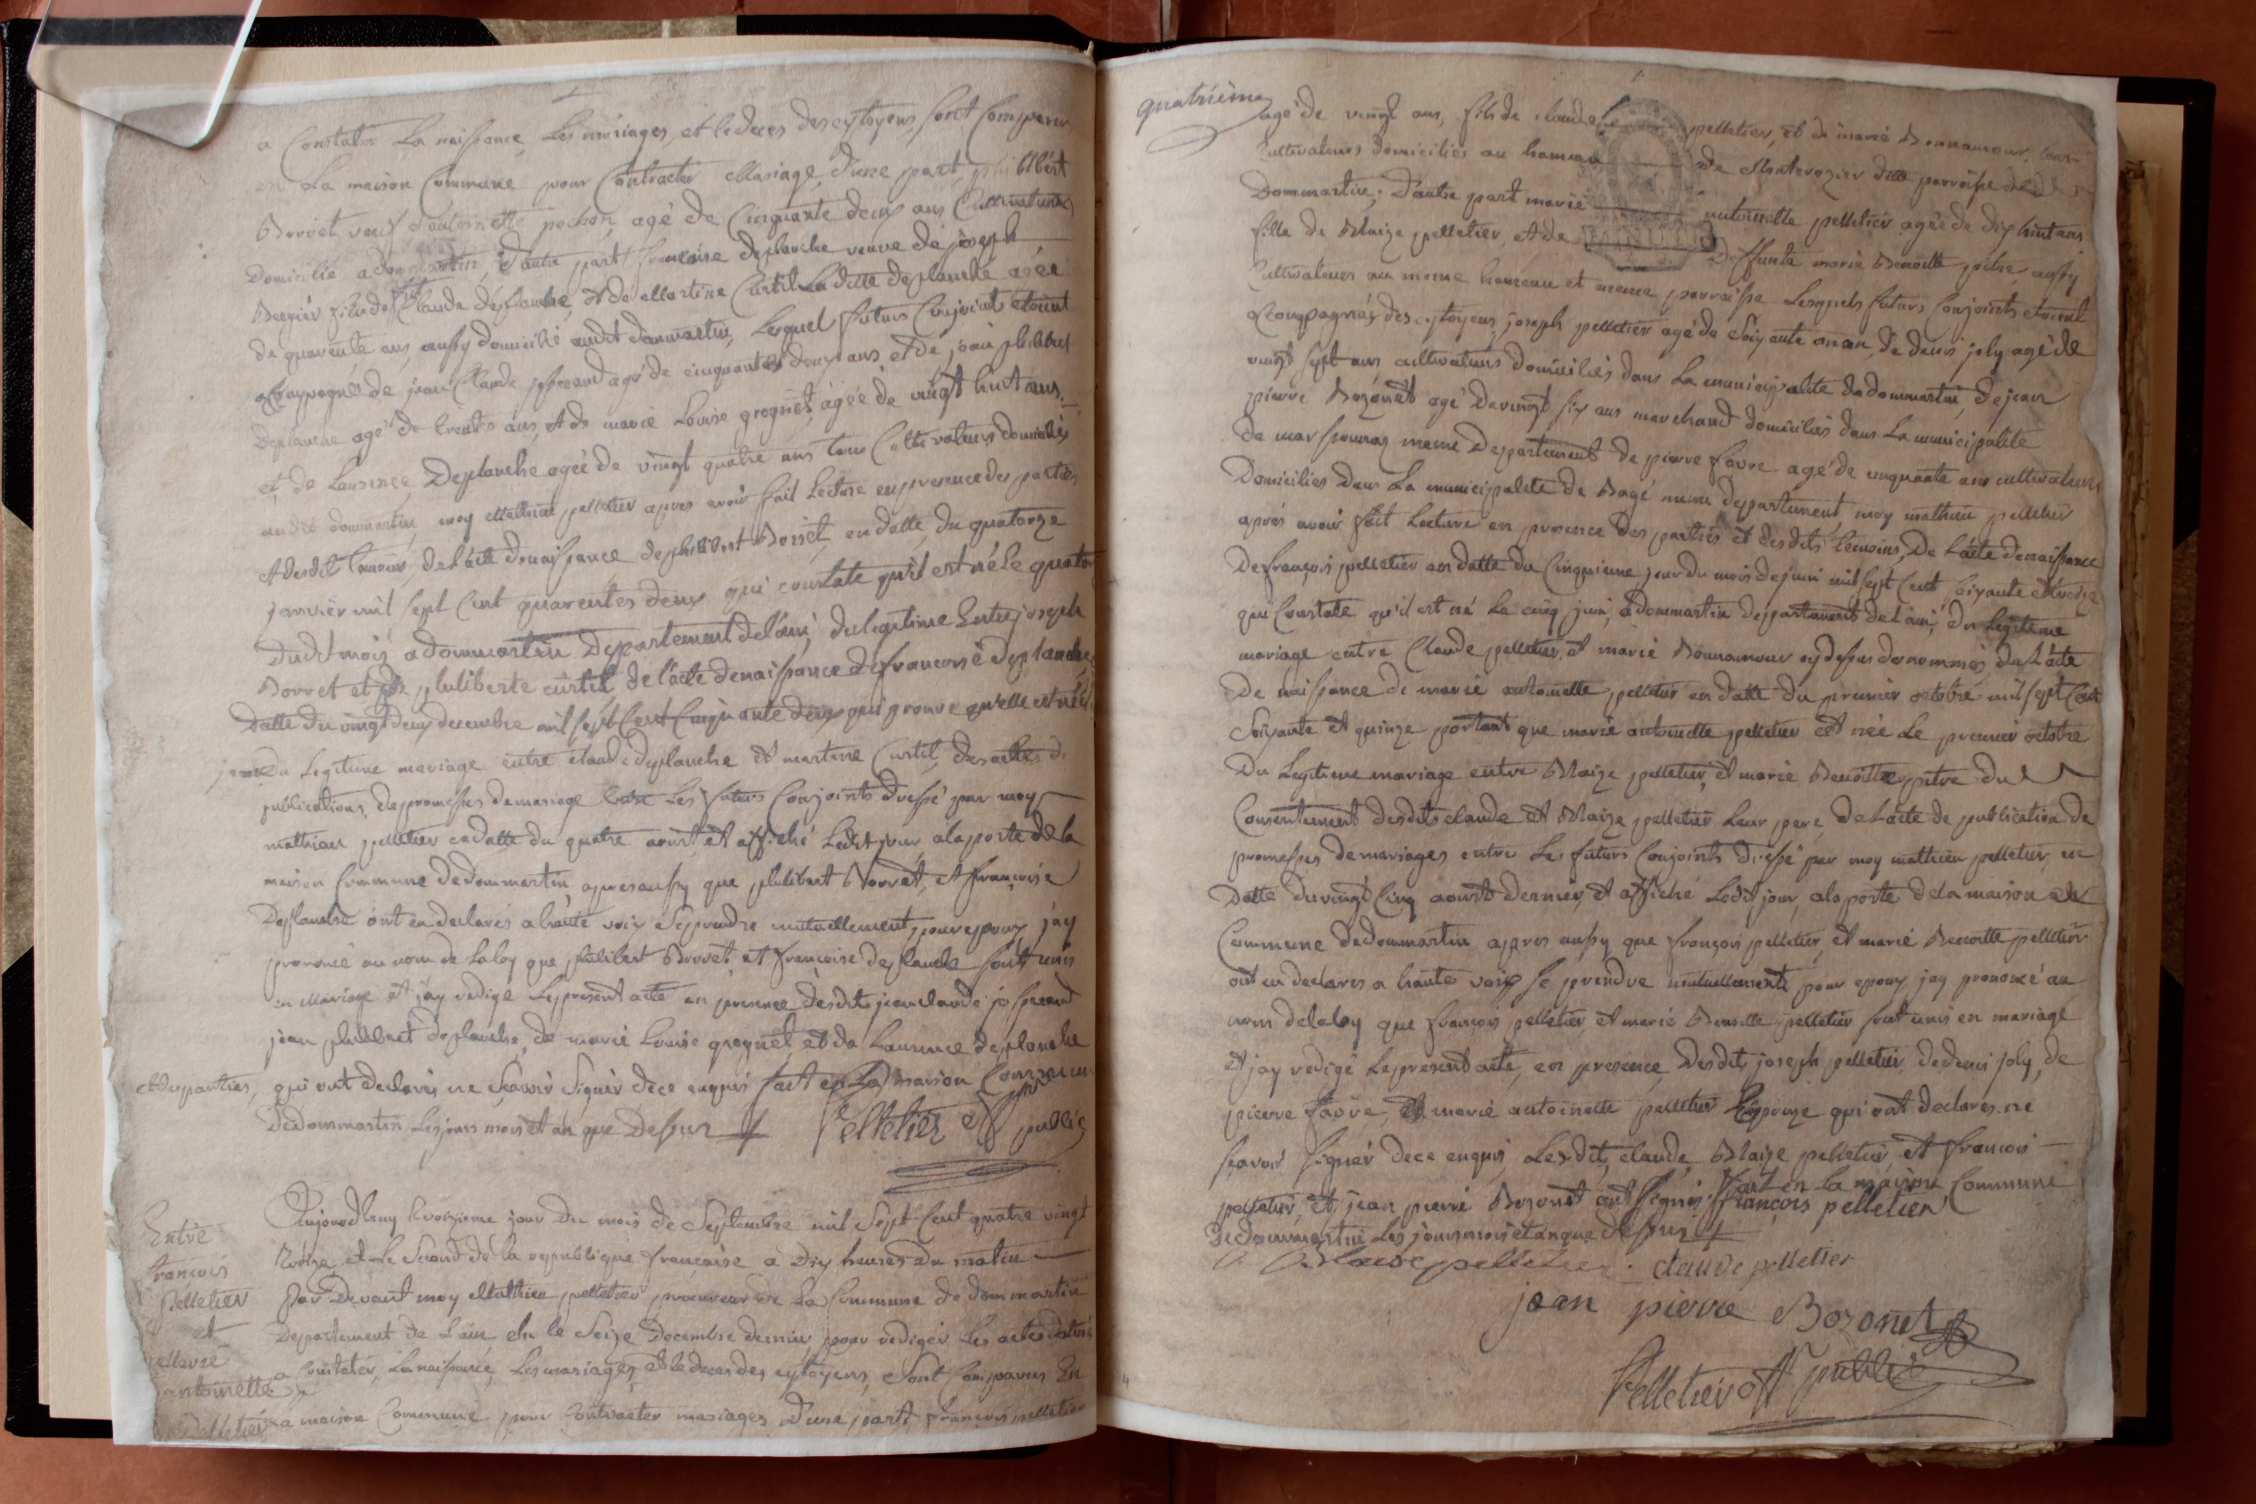 a Constater La naissance, Les mariages, et le deces des cytoyens, sont Comparus
en La maison Commune pour Contracter Mariage, d'une part, philibert
Borret veuf d'antoinette pochon, agé de Cinquante deux ans Cultivateur
Domicilié a dommartin, d'autre part francoise deplanche veuve de joseph
Bergier fille de Claude deplanche, et de Martine Curtil La ditte deplanche agée
de quarente ans, aussy domicilié audit dommartin, Lesquel futurs Conjoints etoient
accompagnés de jean Claude josserand agé de cinquantes deux ans, et de jean philibert
Deplanche agé de trente ans, et de marie Louise grognet, agée de vingt huit ans,
et de Laurence Deplanche agée de vingt quatre ans tous Cultivateurs domiciliés
audit dommartin, moy Mathieu pelletier apres avoir fait Lecture en presence des parties
et desdit temoins, de L'acte de naissance de philibert Borret, en datte du quatorze
janvier mil sept Cent quarentes deux qui constate qu'il est né le quatorze
dudit mois a dommartin Departement de l'ain, du legitime Entre joseph
Borret et de philiberte curtil de l'acte de naissance de francoise deplanche
datte du vingt deux decembre mil sept Cent Cinquante deux qui prouve qu'elle est née
jour du Legitime mariage entre claude deplanche et martine Curtil, des actes de
publications, de promesses de mariage entre Les futurs Conjoints dressé par moy
mathieu pelletier en datte du quatre aoust, et affiché Ledit jour a la porte de la
maison Commune de dommartin apres aussy que philibert Borret, et françoise
Deplanche ont eu declarés a haute voix se prendre mutuellement pour epoux jay
prononcé au nom de La loy que philibert Borret et francoise deplanche sont unis
en Mariage et jay redigé Le present acte en presence desdits jean claude josserand
jean philibert deplanche, de marie Louise grognet, et de Laurence deplanche
et des parties, qui ont declarés ne sçavoir signer de ce enquis fait en La maison Commune
de dommartin Les jours mois et an que dessus
Pelletier off public
Entre
francois
Pelletier
et
Marie
antoinette
pelletier
Aujourd'huy troizieme jour du mois de Septembre mil Sept Cent quatre vingt
treize et le Second de la republique francaise a dix heures du matin
Par Devant moy Mathieu pelletier procureur de La Commune de dommartin
Departement de L'ain elu le Seize Decembre dernier, pour rediger Les actes destinés
a Constater, La naissance, Les mariages, et le deces des cytoyens, Sont Comparus En
La maison Commune pour Contracter mariages d'une part françois pelletier
quatrième
agé de vingt ans, fils de claude pelletier, et de marie Bonnamour,
Cultivateurs domiciliés au hameau de Montvozier ditte parroisse de
Dommartin; d'autre part marie antoinette pelletier agée de dix huit ans
fille de Blaize pelletier, et de Deffunte marie Benoitte pitre, aussy
Cultivateurs au meme hameau et meme parroisse Lesquels futurs Conjoints etoient
accompagnés des cytoyens joseph pelletier agé de soixante un an, de denis joly agé de
vingt sept ans cultivateurs domiciliés dans La municipalité de dommartin, de jean
pierre Bozonet agé de vingt six ans marchand domiciliés dans La municipalité
de marsonnas meme departement de pierre favre agé de cinquante ans cultivateurs
Domiciliés dans La municipalité de Bagé meme departement, moy mathieu pelletier
apres avoir fait Lecture en presence des parties et desdits temoins, De L'acte de naissance
De françois pelletier en datte du Cinquieme jour du mois de juin mil sept Cent soixante et treize
qui Constate qu'il est né le cinq juin, a dommartin departement de L'ain, du Legitime
mariage entre Claude pelletier, et marie Bonnamour cy dessus denommés, de L'acte
De naissance de marie antoinette pelletier en datte du premier octobre mil sept Cent
soixante et quinze portant que marie antoinette pelletier est née Le premier octobre
Du Legitime mariage entre Blaize pelletier, et marie Benoitte pitre du
Consentement desdits claude et Blaize pelletier Leur pere, de Lacte de publication de
promesses de mariages entre Les futurs Conjoints dressé par moy mathieu pelletier, en
Datte du vingt Cinq aoust dernier, et affiché Ledit jour, a la porte de la maison
Commune de dommartin apres aussy que françois pelletier, et marie Benoitte pelletier
ont eu declares a haute voix se prendre mutuellement pour epoux jay prononcé au
nom de la loy que françois pelletier et marie Benoitte pelletier sont unis en mariage
et jay redigé Le present acte, en presence, desdits joseph pelletier de denis joly, de
pierre favre, et marie antoinette pelletier L'epouze qui ont declares ne
sçavoir signer de ce enquis, Lesdits, claude, Blaize pelletier, et francois
pelletier, et jean pierre Bozonet ont signés, fait en La maison Commune
françois pelletier
de dommartin Les jours mois et an que dessus
Blaise pelletier claude pelletier
jean pierre Bozonet
Pelletier off public